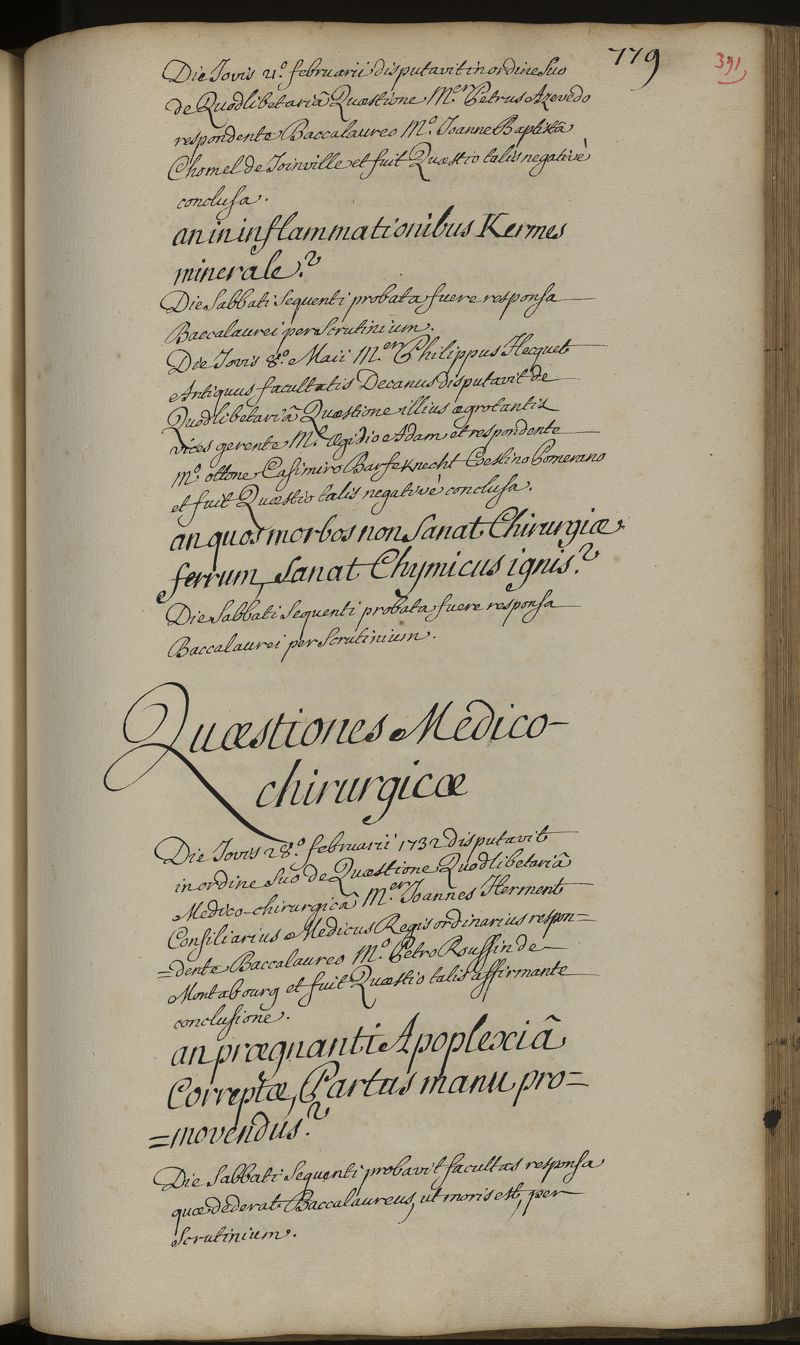 779
391
Die Jovis 21.º februarii disputavit in ordine suo
de Quodlibetariâ Quæstione M.er Petrus Azevedo
respondente Baccalaureo M.º Joanne Baptistâ
Chomel de Joinville et fuit Quæstio talis negativè
conclusa.
an in inflammationibus Kermes
minerale?
Die Sabbati Sequenti probata fuere responsa
Baccalaurei per Scrutinium.
Die Jovis 8.º Maii M.er Philippus Hecquet
Antiquus facultatis Decanus disputavit de
Quodlibetariâ Quæstione illius ægrotantis
vices gerente M.º Ægidio Adam et respondente
M.º ottone Casimiro Barfeknecht Cestino Pomerano
et fuit Quæstio talis negativè conclusa.
an quos morbos non Sanat Chirurgiæ
ferrum, Sanat Chymicus ignis?
Die Sabbati Sequenti probata fuere responsa
Baccalaurei per Scrutinium.
Quæstiones Medico-
chirurgicæ
Die Jovis 28.º februarii 1732 disputavit
in ordine suo de Quæstione Quodlibetariâ
Medico-chirurgicâ M.er Joannes Herment
Consiliarius Medicus Regis ordinarius respon=
=dente Baccalaureo M.º Petro Roussin de
Montabourg et fuit Quæstio talis affirmante
conclusione.
an prægnanti Apoplexiâ
Correptæ, Partus manu pro=
=movendus?
Die Sabbati Sequenti probavit facultas responsa
quæ dederat Baccalaureus, ut moris est, per
Scrutinium.